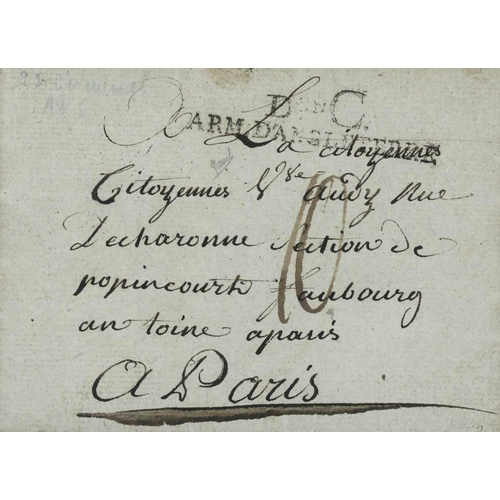 Don C.
ARM. D'ANGLETERRE
La citoyennes
Citoyennes Vve audy Rue
Decharonne Section de
popincourt faubourg
antoine a paris
10
A Paris